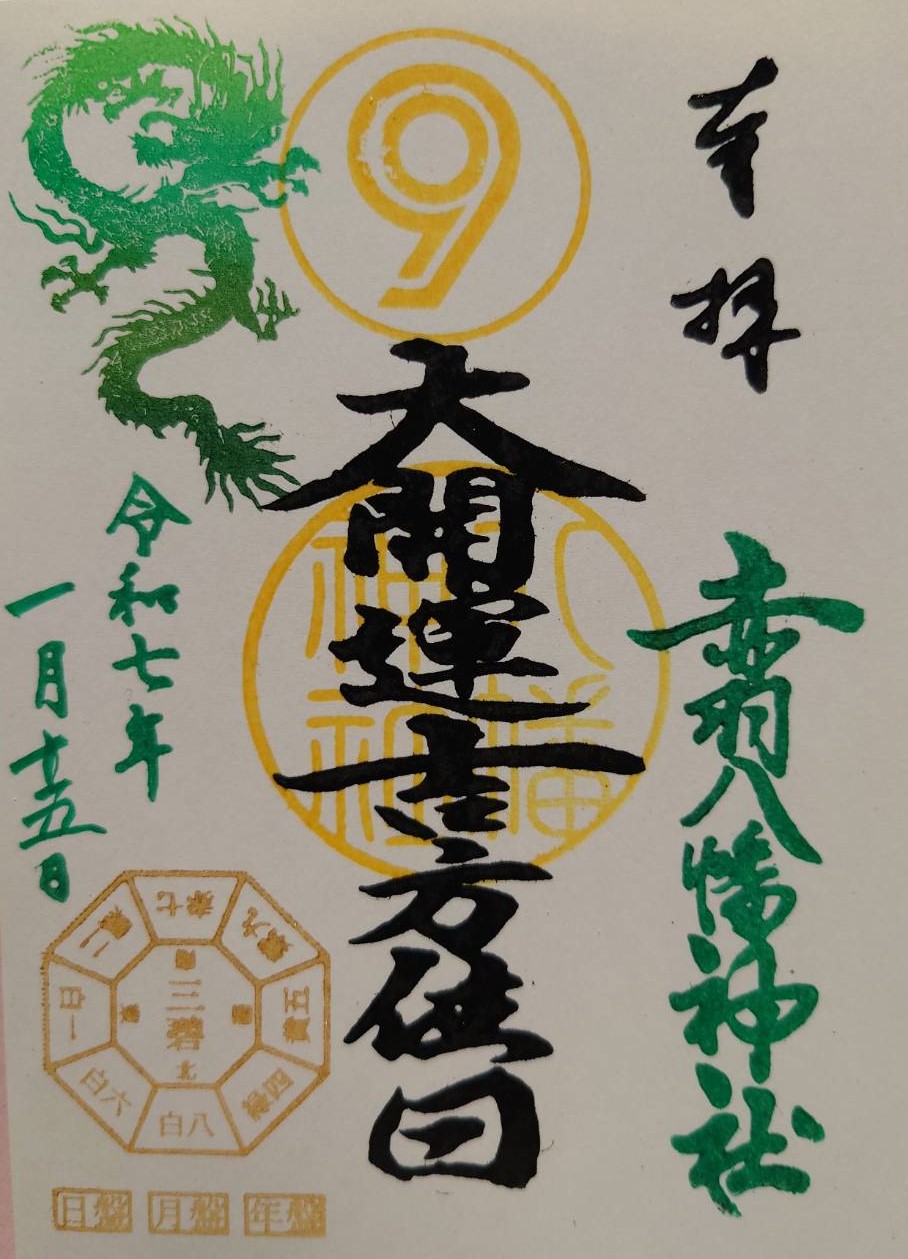 奉拝
赤羽八幡神社
9
大開運吉方供日
八幡
神社
令和七年
一月十五日
七赤
九紫
五黄
四緑
八白
六白
一白
二黒
南
三碧
北
東
西
日盤
月盤
年盤